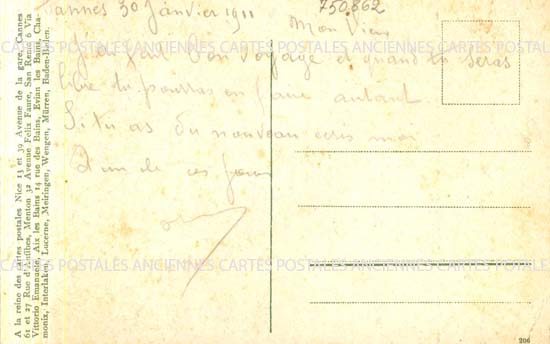 Cannes 30 Janvier 1911
750.862
Mon Vieux
J'ai fait bon voyage et quand tu seras
libre tu pourras en faire autant.
Si tu as du nouveau ecris moi
un de ces jours
A la reine des cartes postales Nice 13 et 39 Avenue de la gare, Cannes
61 et 27 Rue d'Antibes, Menton 32 Avenue Felix Faure, San Remo 6 Via
Vittorio Emanuele, Aix les Bains 14 rue des Bains, Evian les Bains, Cha-
monix, Interlaken, Lucerne, Meiringen, Wengen, Mürren, Baden-Baden.
CARTES POSTALES ANCIENNES CARTES POSTALES ANCIENNES
CARTES POSTALES ANCIENNES CARTES POSTALES ANCIENNES
206